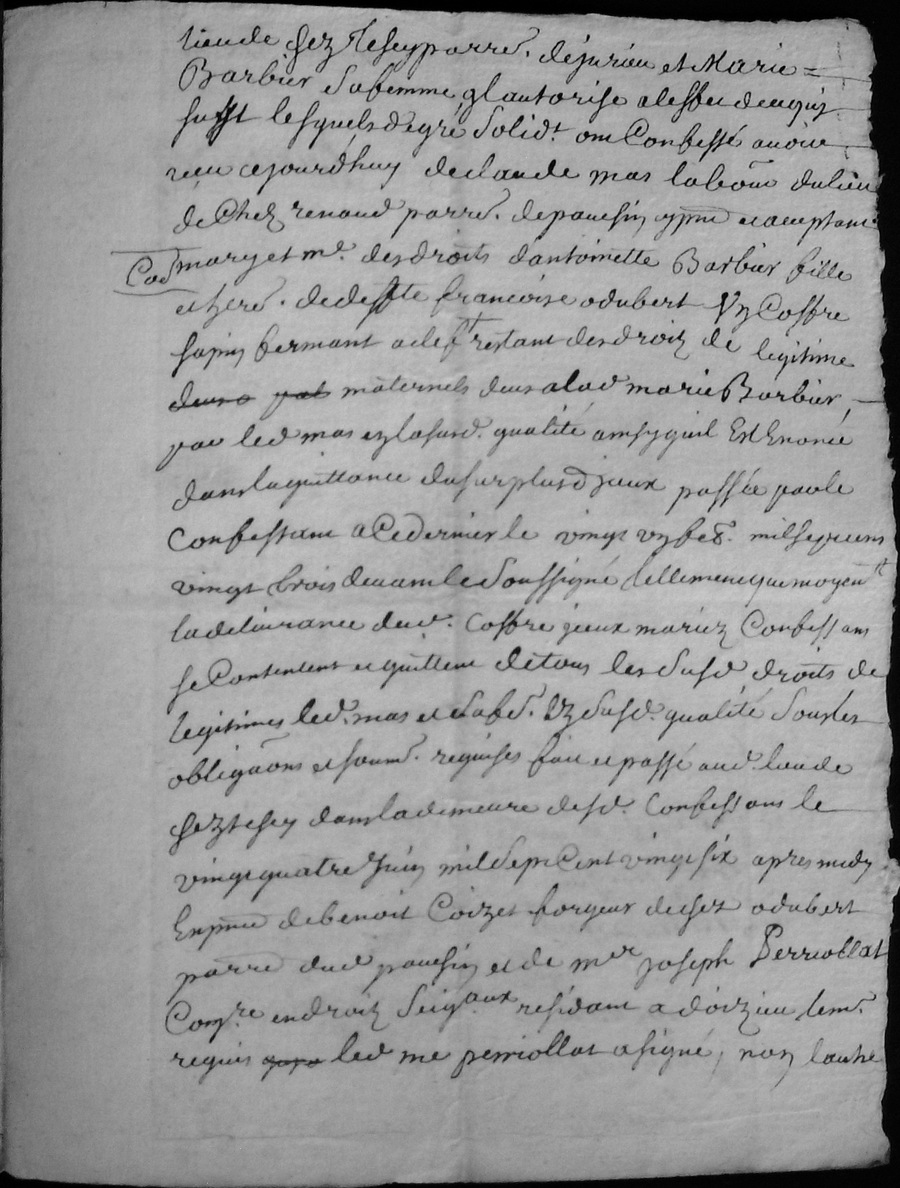 lieu de chez Tesey parre. de jurieu et Marie =
Barbier sa femme ql autorise a leffet du cy
fusst lesquels de gré solidt. ont Confessé avoir
recu cejourdhuy de claude mas labour du lieu
de Chez renaud parre. de pauesin ypnt et acceptant
Cod mary et me. des droits dantoinette Barbier fille
et here. de deffte francoise odubert Vn Coffre
sapin fermant a cleft restant des droitz de legitime
maternels deus a lad marie Barbier,
par led mas en la susd. qualité ainsy quil Est Enoncé
dans la quittance du surplus diceux passée par le
Confessant a Ce dernier le vingt vn feb. mil sept cens
vingt trois devant le soussigné tellement que moyent
la delivrance dud. Coffre iceux mariez Confessans
se Contentent et quittent de tous les susd droits de
legitimes led. mas et sad. Ez susd. qualité sous les
obligaõns et soum. requises fait et passé aud. lieu de
chez tesey dans la demeure desd. Confessans le
vingt quatre Juin mil sept Cent vingt six apres midy
En pnce de benoit Coizet forgeur de chez odubert
parre dud pauesin et de mer joseph Perriollat
Comre. en droitz seigaux residant a doizieu tem.
requis led me perriollat a signé, non lautre